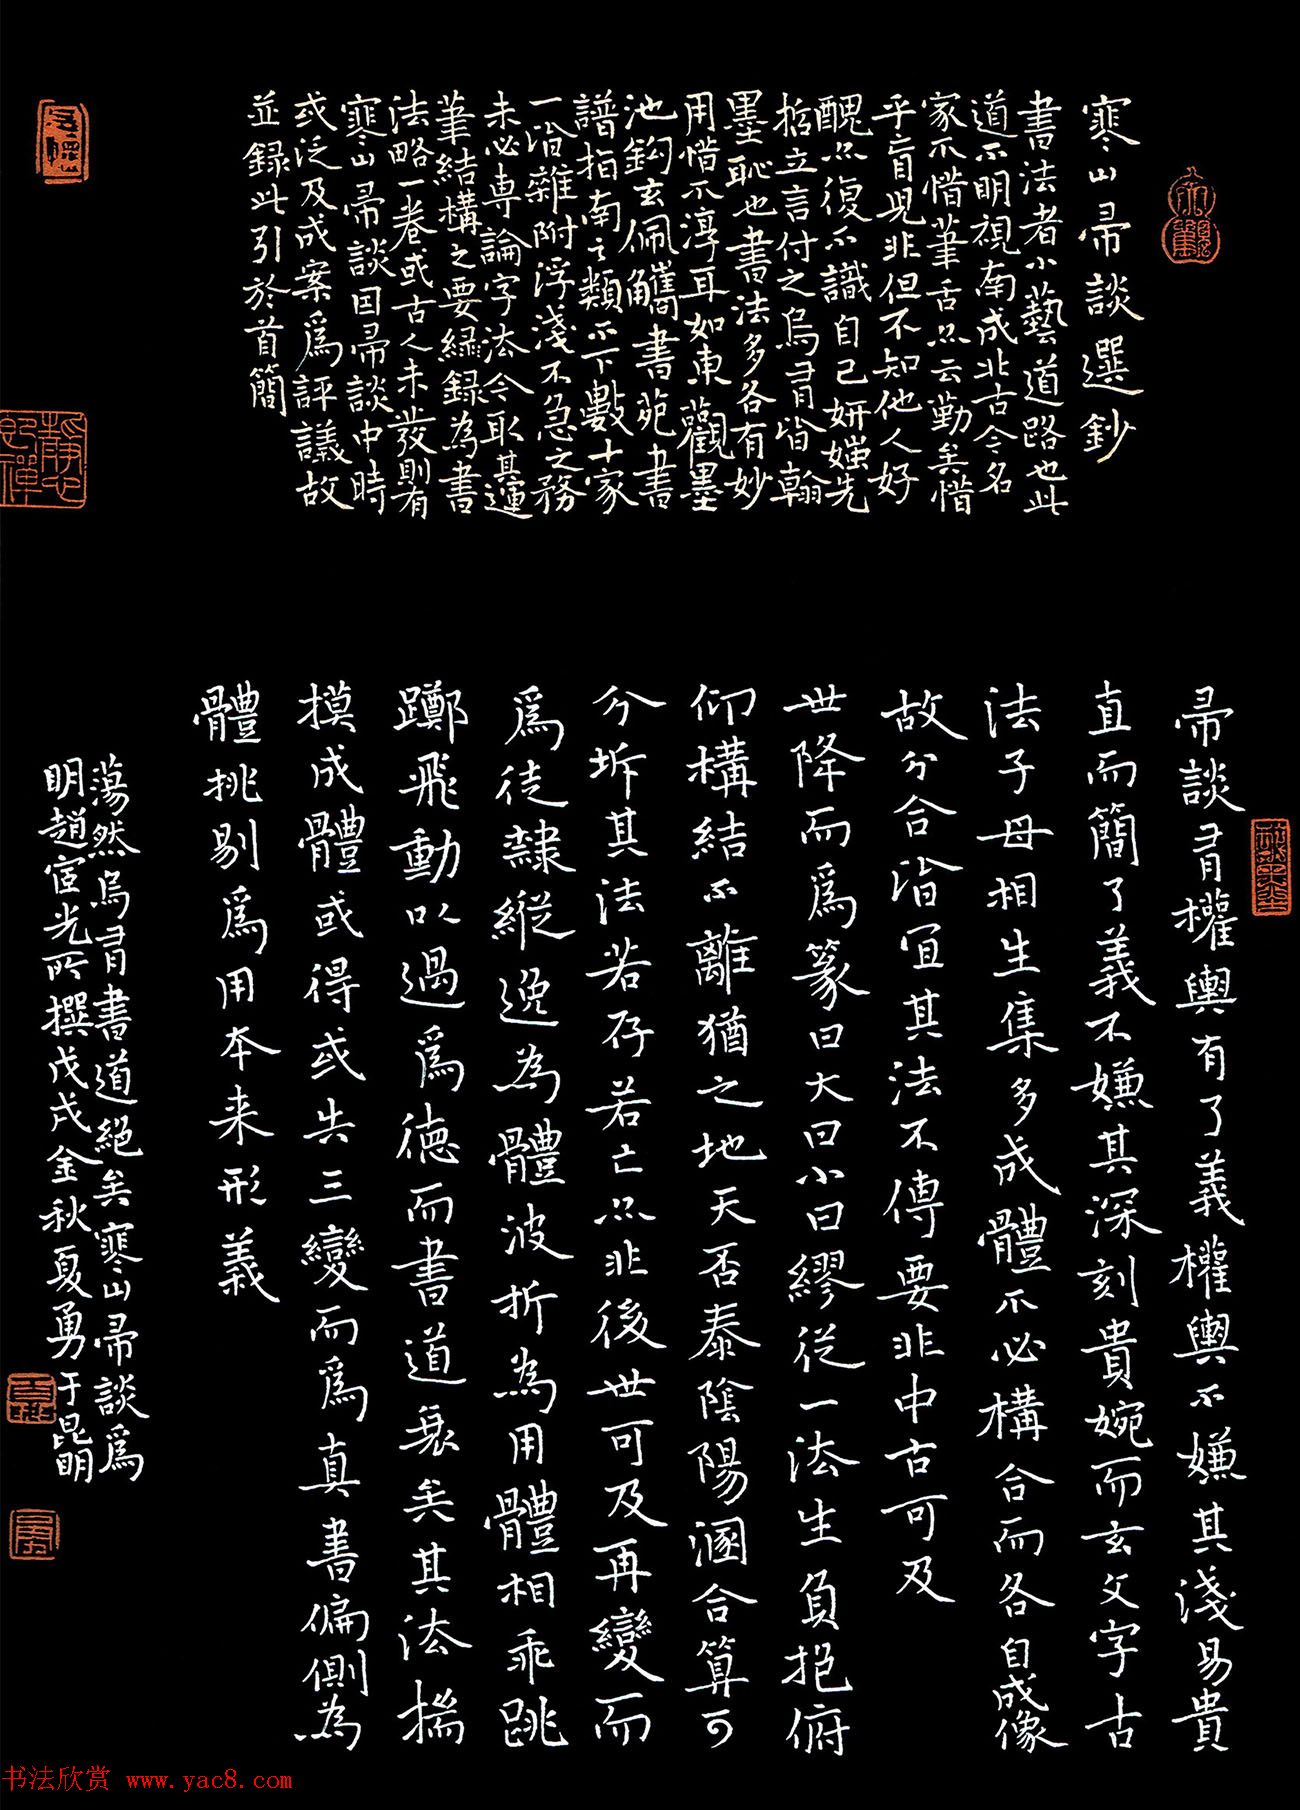 寒山帚談選鈔
書法者小藝道路也此
道不明視南成北古今名
家不惜筆舌亦云勤矣惜
乎盲睍非但不知他人好
醜亦復不識自己妍媸先
哲立言付之烏有皆翰
墨恥也書法多各有妙
用惜不淳耳如東觀墨
池鈎玄佩觿書苑書
譜指南之類不下數十家
一澘雜附浮淺不急之務
未必專論字法今取其運
筆結構之要繕錄為書
法略一卷或古人未發則有
寒山帚談因帚談中時
或泛及成案爲評議故
並錄此引於首簡
帚談有權輿有了義權輿不嫌其淺易貴
直而簡了義不嫌其深刻貴婉而玄文字古
法子母相生集多成體不必構合而各自成像
故分合皆宜其法不傳要非中古可及
世降而爲篆曰大曰小曰繆從一法生負抱俯
仰構結不離猶之地天否泰陰陽溷合算可
分坼其法若存若亡亦非後世可及再變而
爲徒隸縱逸為體波折為用體相乖跳
躑飛動以過爲德而書道衰矣其法揣
摸成體或得或失三變而爲真書偏側為
體挑剔爲用本来形義
蕩然烏有書道絕矣寒山帚談爲
明趙宧光所撰戊戌金秋夏勇于昆明
书法欣赏 www.yac8.com